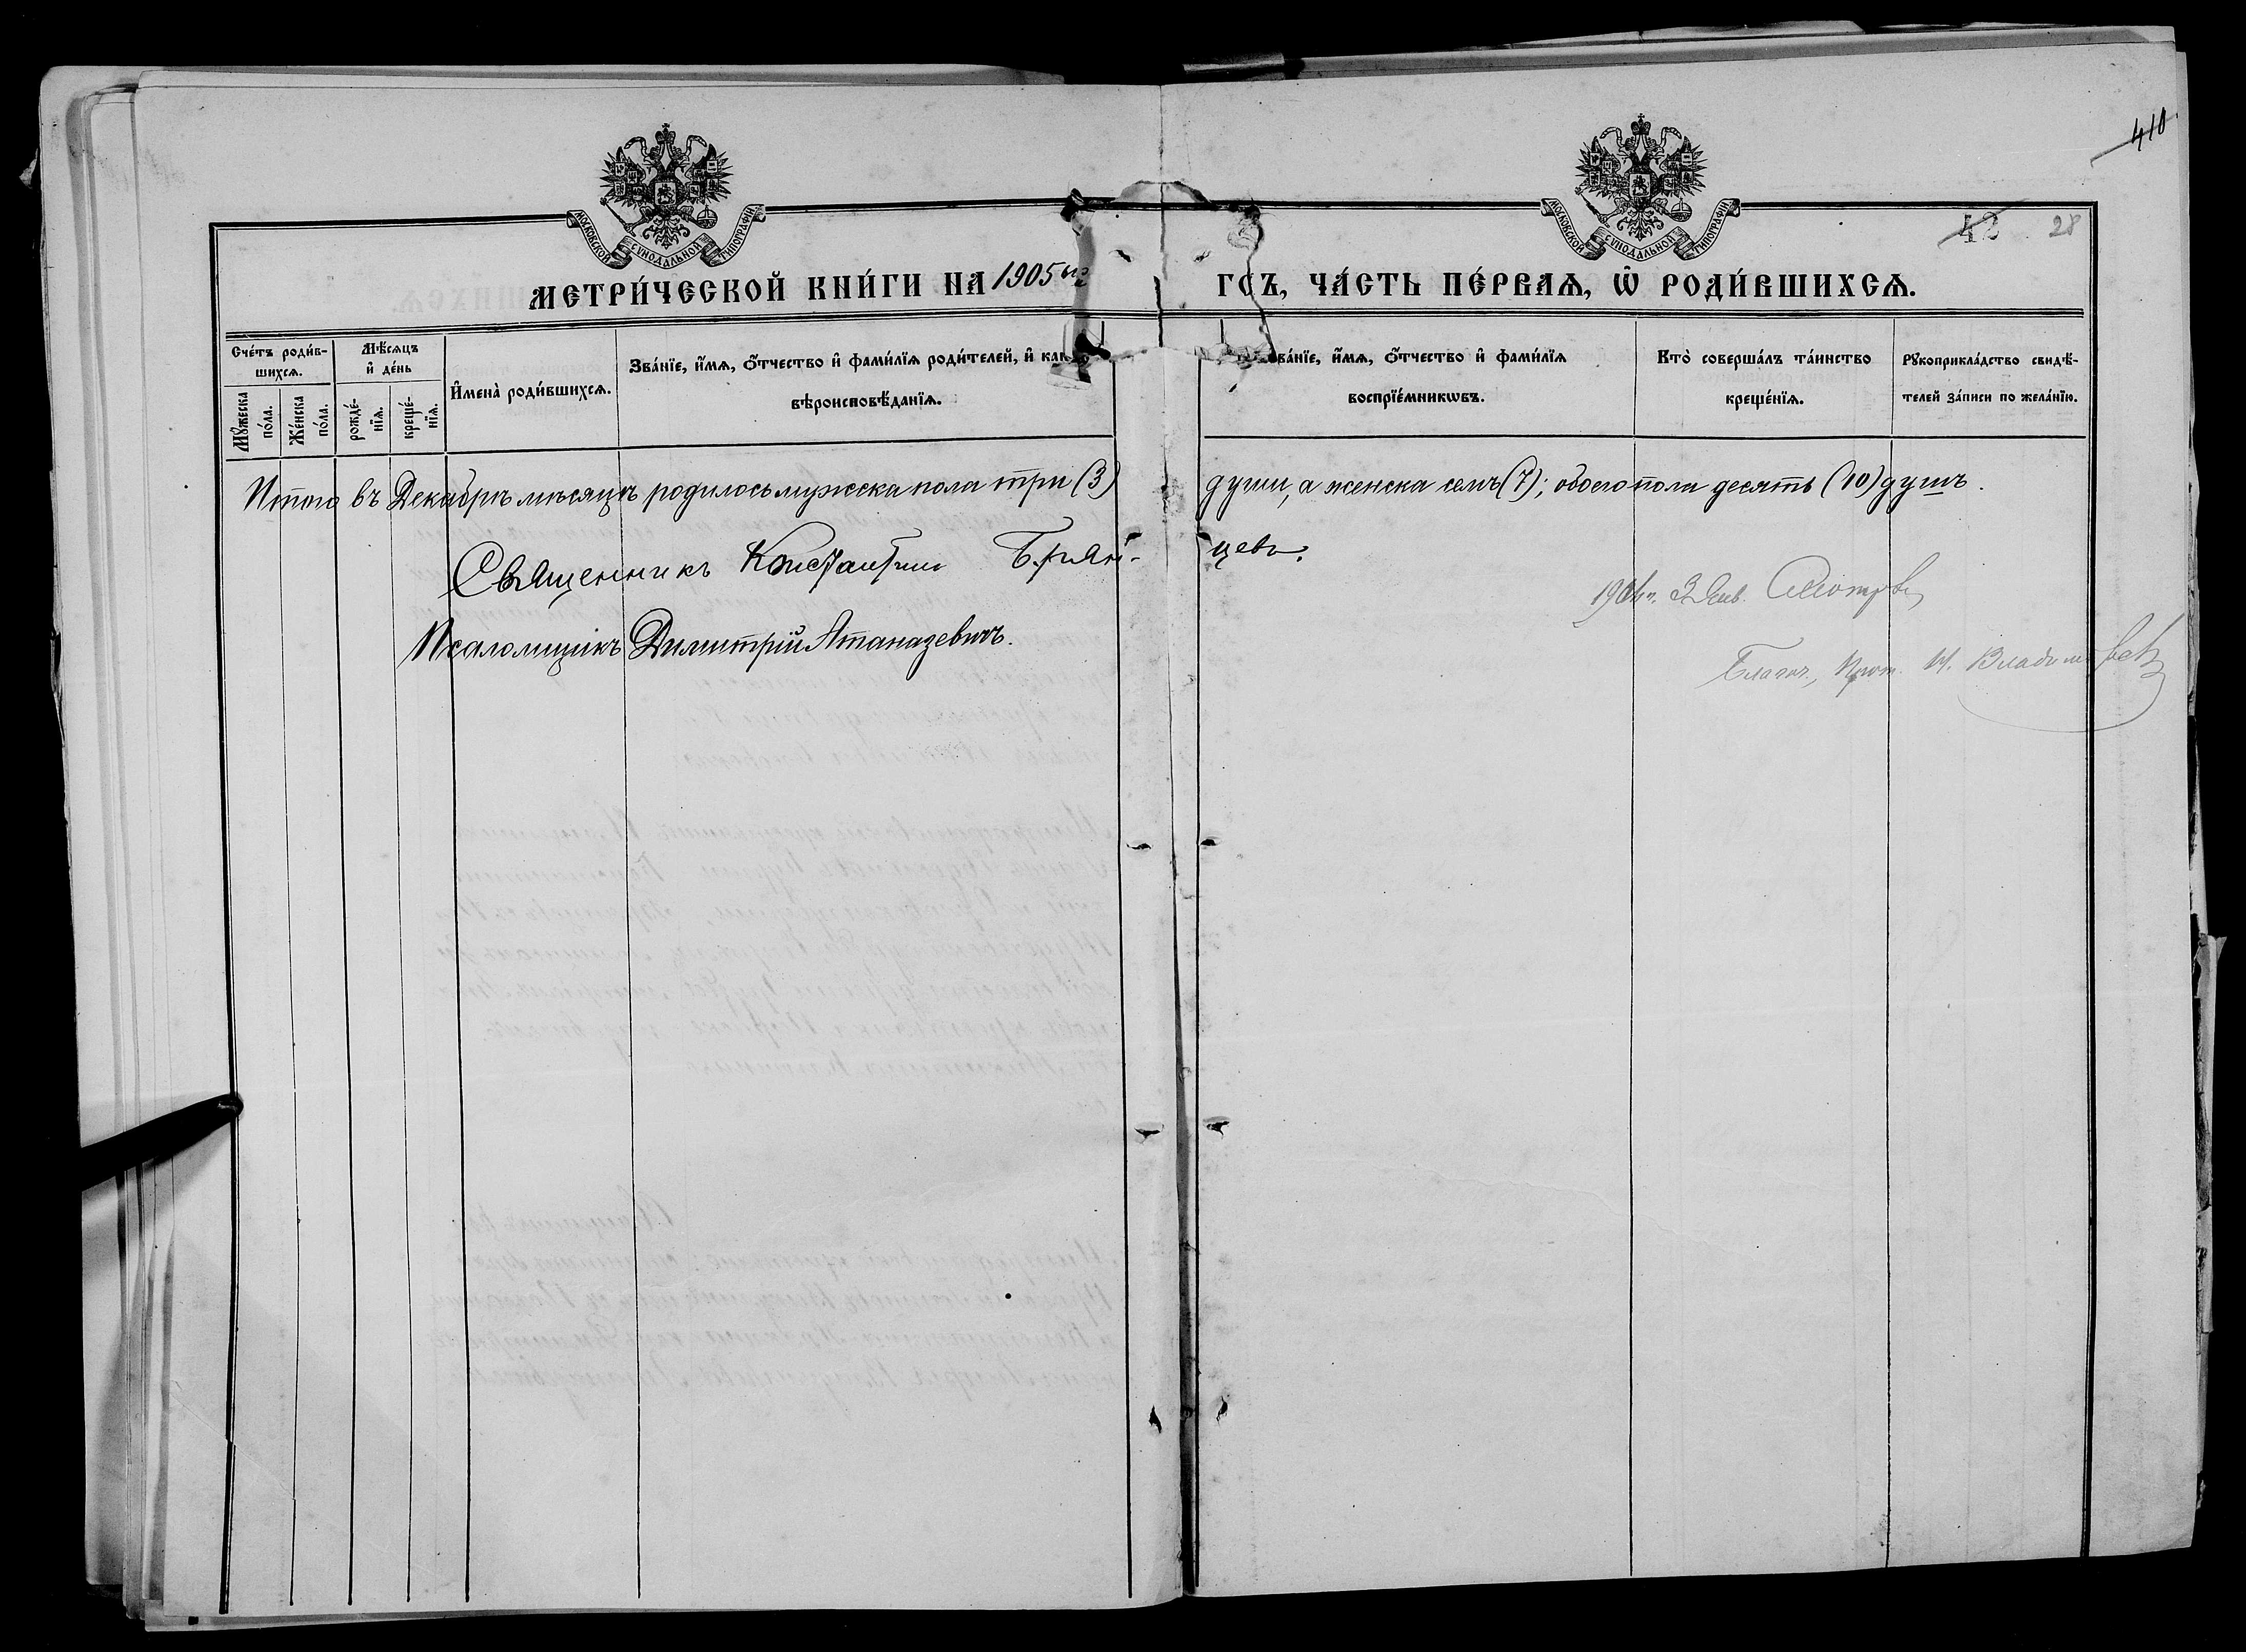 410
42 28
МОСКОВСКОЙ СѴНОДАЛЬНОЙ ТИПОГРАФІИ
МОСКОВСКОЙ СѴНОДАЛЬНОЙ ТИПОГРАФІИ
МЕТРИ́ЧЕСКОЙ КНИ́ГИ НА 1905ый ГОДЪ, ЧА́СТЬ ПЕ́РВАѦ, Ѡ РОДИ́ВШИХСѦ.
Сче́тъ роди́вшихсѧ.
Мꙋжеска по́ла.
Же́нска по́ла.
Мѣ́сѧцъ и҆ де́нь
рожде́нїѧ.
креще́нїѧ.
И҆мена̀ роди́вшихсѧ.
Зва́нїе, и҆́мѧ, ѻ҆́тчество и҆ фами́лїѧ роди́телей, и҆
вѣроисповѣ́данїѧ.
Зва́нїе, и҆́мѧ, ѻ҆́тчество и҆ фами́лїѧ
воспрїе́мникѡвъ.
Кто̀ соверша́лъ та́инство
креще́нїѧ.
Рꙋкоприкла́дство свидѣ́-
телей за́писи по жела́нїю.
Итого въ Декабрѣ мѣсяцѣ родилось мужска пола три (3) души, а женска семь (7); обоего пола десять (10) душъ.
Священникъ Константинъ Брянцевъ.
Псаломщикъ Димитрій Атаназевичъ.
3 Янв. Смотрѣлъ
Благоч., Прот. И. Владим